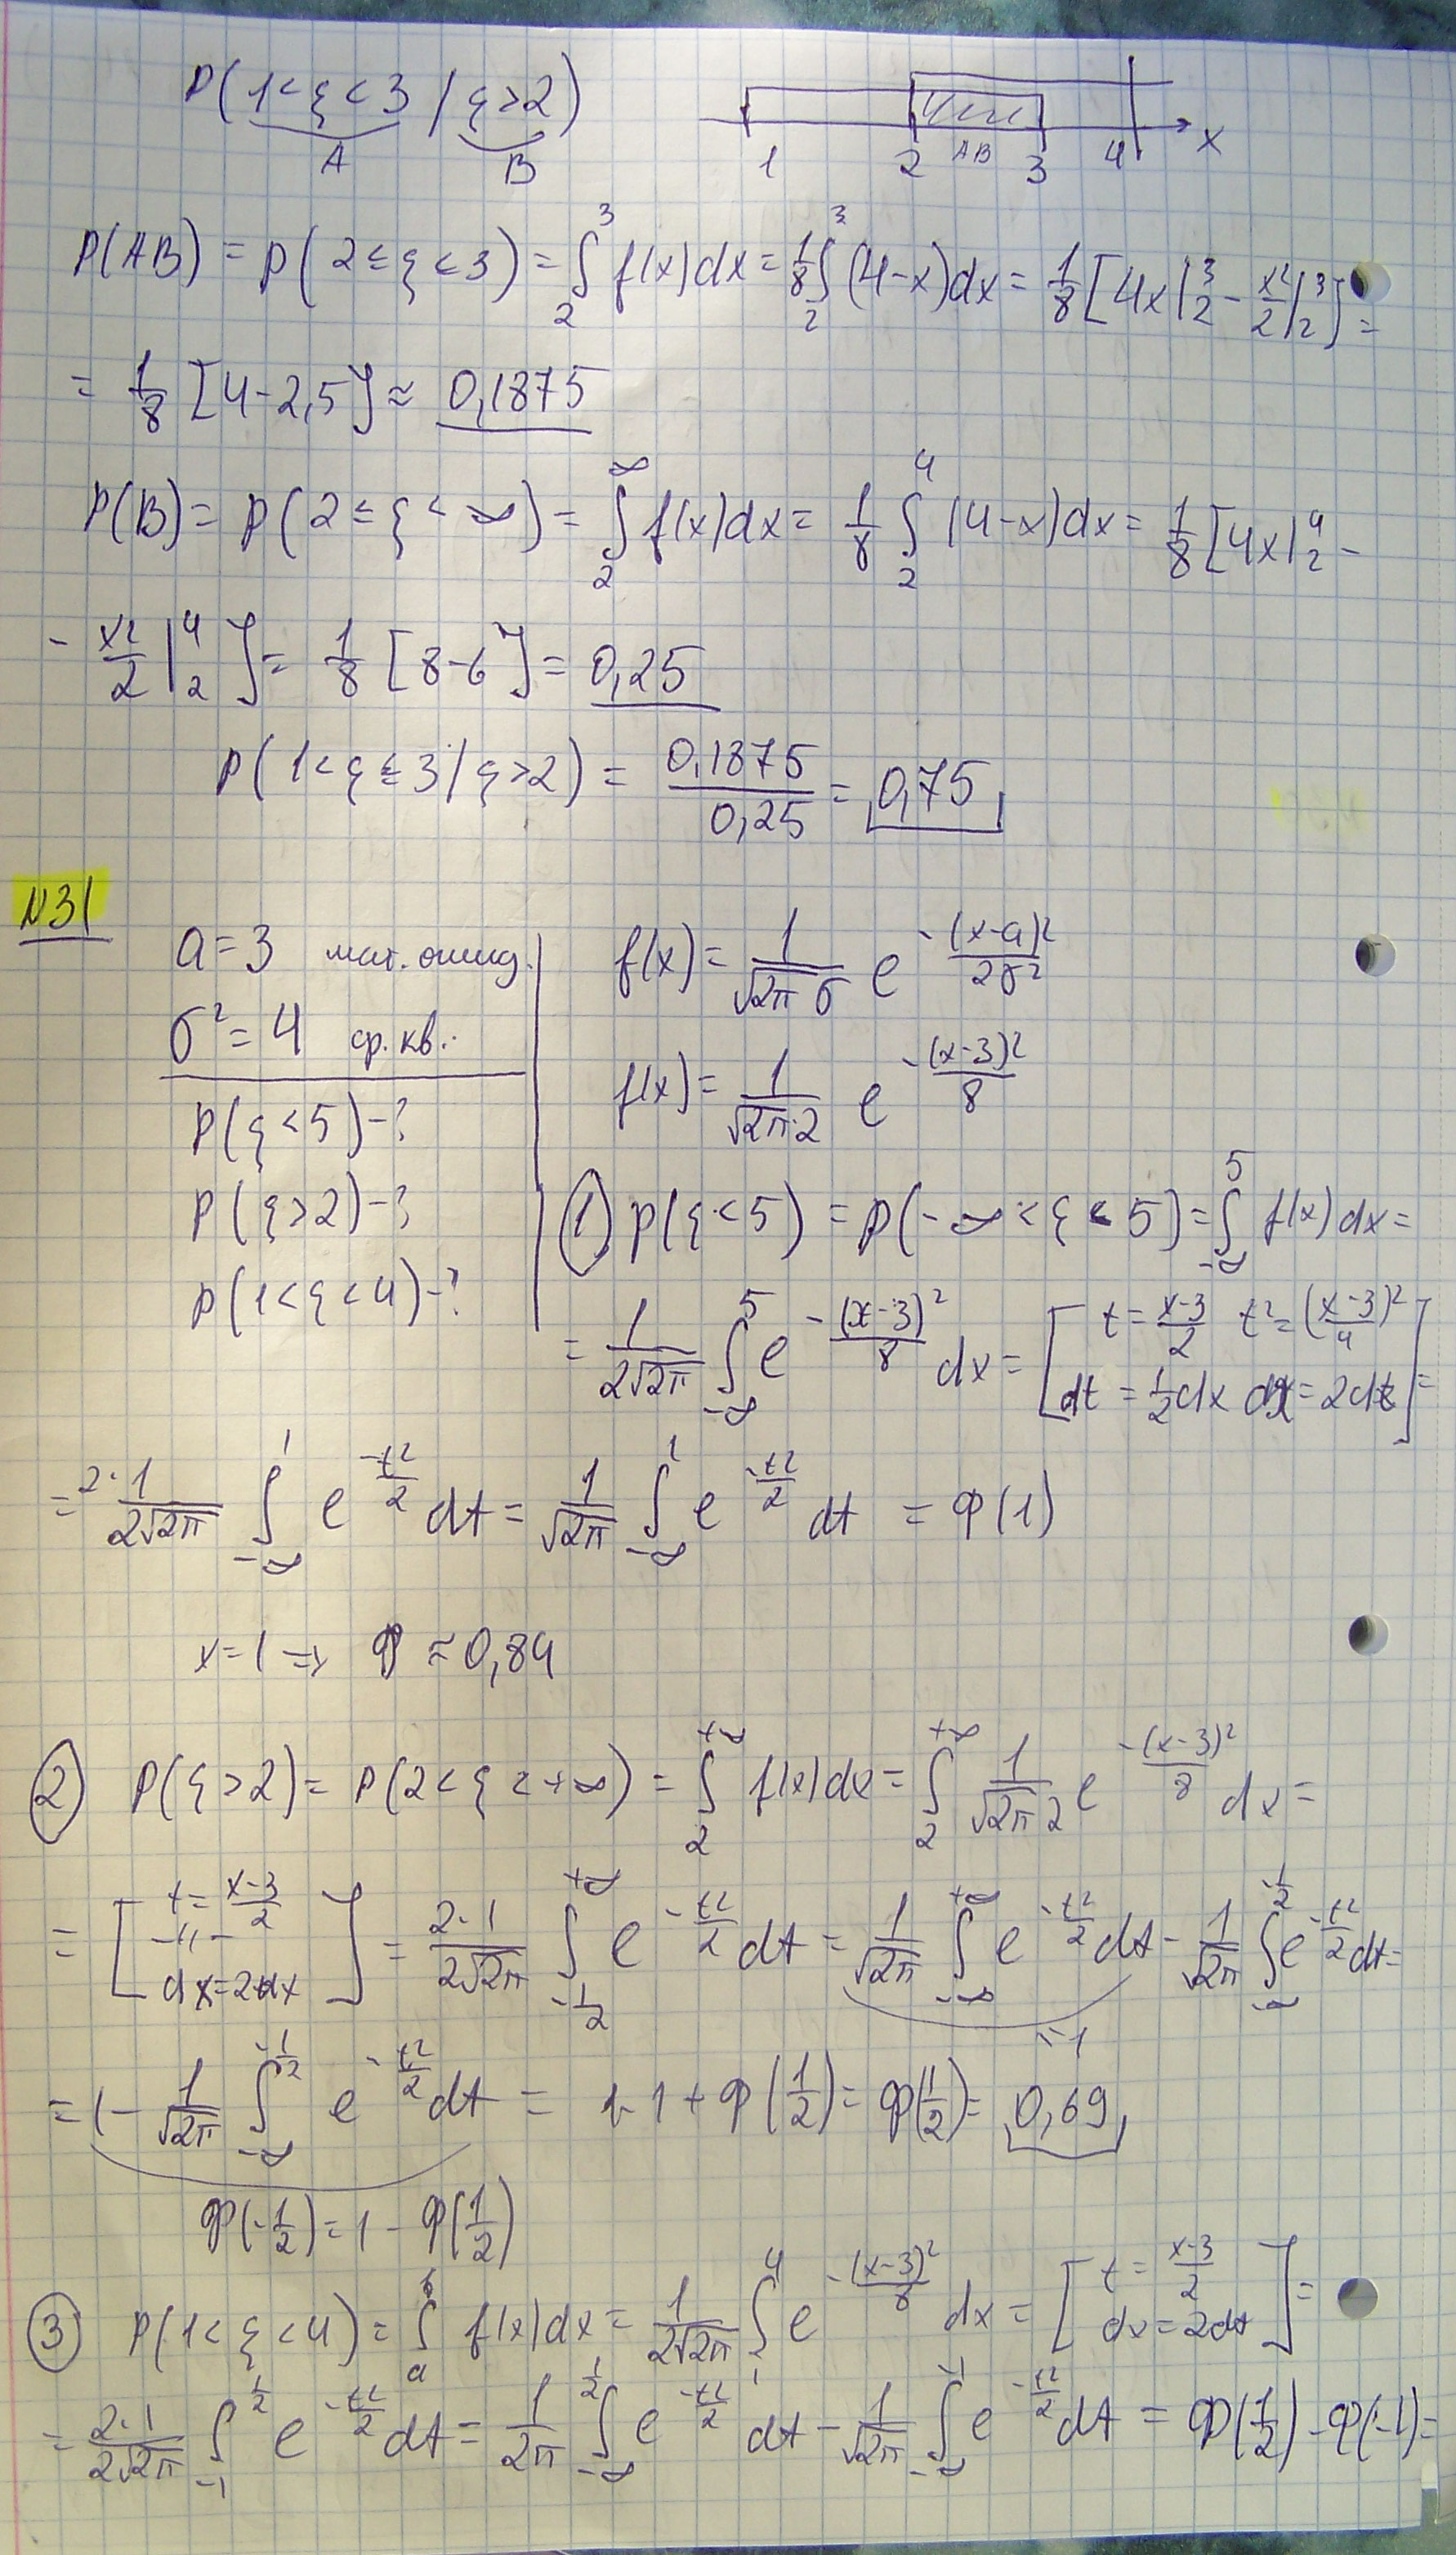 P(1<ξ<3 / ξ>2)
A B
1 2 AB 3 4 x
P(AB) = P(2≤ξ<3) = ∫₂³ f(x)dx = 1/8 ∫₂³ (4-x)dx = 1/8 [4x|₂³ - x²/2|₂³] =
= 1/8 [4-2,5] ≈ 0,1875
P(B) = P(2≤ξ<∞) = ∫₂^∞ f(x)dx = 1/8 ∫₂⁴ (4-x)dx = 1/8 [4x|₂⁴ -
- x²/2|₂⁴] = 1/8 [8-6] = 0,25
P(1<ξ≤3/ξ>2) = 0,1875/0,25 = 0,75
N31
a=3 мат. ожид.
σ²=4 ср. кв.
P(ξ<5)-?
P(ξ>2)-?
P(1<ξ<4)-?
f(x) = 1/(√2π σ) e^(-(x-a)²/2σ²)
f(x) = 1/(√2π·2) e^(-(x-3)²/8)
① P(ξ<5) = P(-∞<ξ<5) = ∫_-∞^5 f(x)dx =
= 1/(2√2π) ∫_-∞^5 e^(-(x-3)²/8) dx = [t = (x-3)/2 t² = (x-3)²/4
dt = 1/2 dx dx = 2dt] =
= 2·1/(2√2π) ∫_-∞^1 e^(-t²/2) dt = 1/√2π ∫_-∞^1 e^(-t²/2) dt = Ф(1)
x=1 ⇒ Ф ≈ 0,84
② P(ξ>2) = P(2<ξ<+∞) = ∫₂^+∞ f(x)dx = ∫₂^+∞ 1/(√2π 2) e^(-(x-3)²/8) dx =
= [t = (x-3)/2
-"-
dx=2dx] = 2·1/(2√2π) ∫_-1/2^+∞ e^(-t²/2) dt = 1/√2π ∫_-∞^+∞ e^(-t²/2) dt - 1/√2π ∫_-∞^-1/2 e^(-t²/2) dt =
=1
= 1 - 1/√2π ∫_-∞^-1/2 e^(-t²/2) dt = 1-1+Ф(1/2) = Ф(1/2) = 0,69
Ф(-1/2) = 1 - Ф(1/2)
③ P(1<ξ<4) = ∫_a^b f(x)dx = 1/(2√2π) ∫₁⁴ e^(-(x-3)²/8) dx = [t = (x-3)/2
dx = 2dt] =
= 2·1/(2√2π) ∫_-1^1/2 e^(-t²/2) dt = 1/2π ∫_-∞^1/2 e^(-t²/2) dt - 1/√2π ∫_-∞^-1 e^(-t²/2) dt = Ф(1/2) - Ф(-1) =